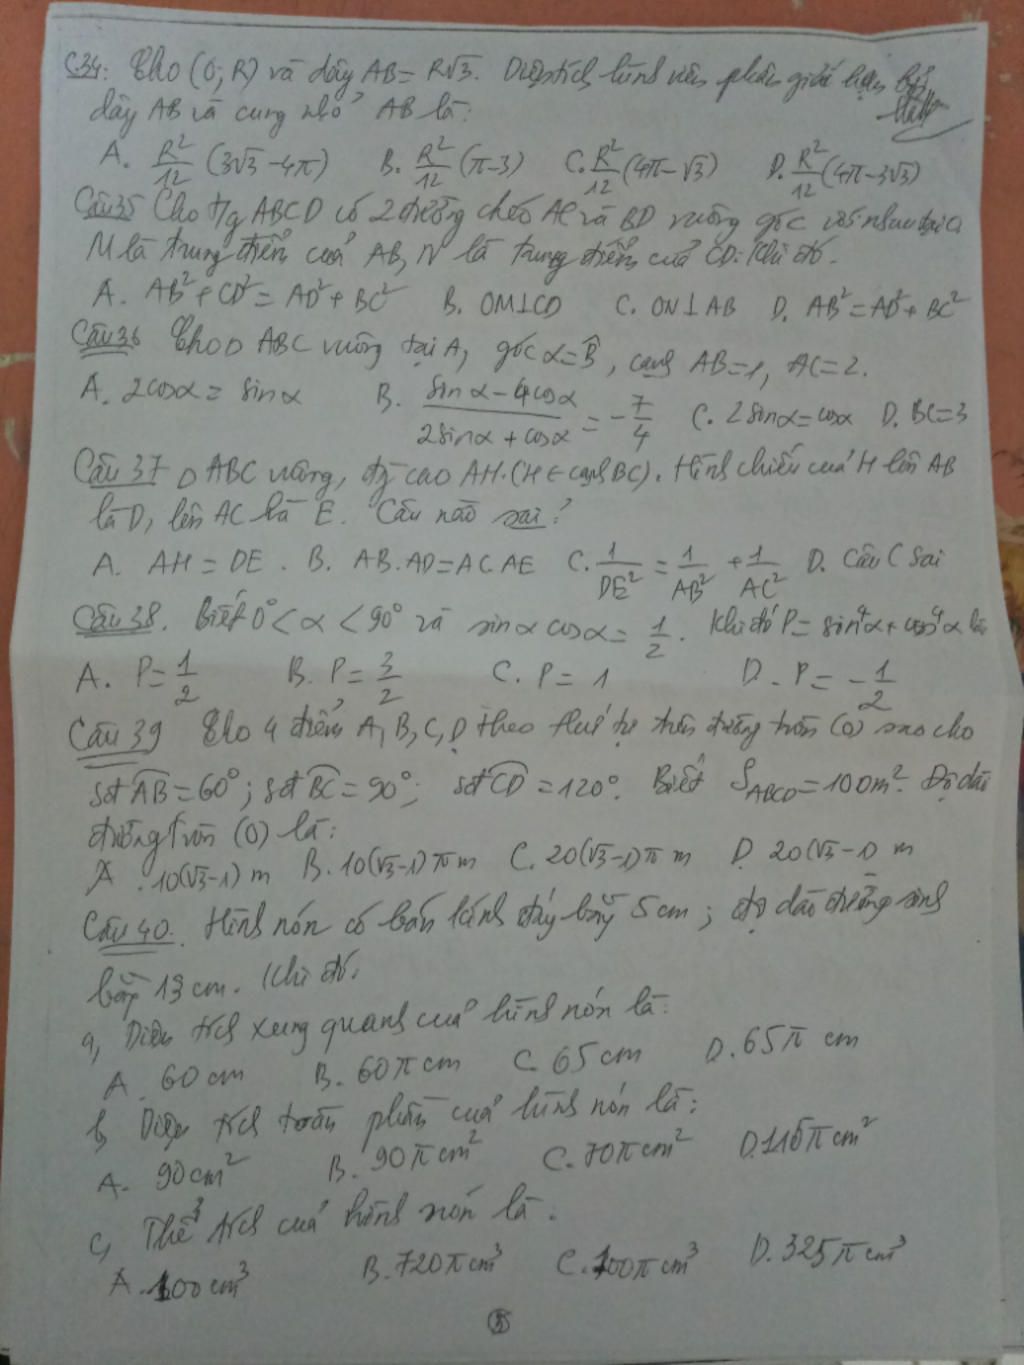 C.34: Cho (O; R) và dây AB = R√3. Diện tích hình viên phân giới hạn bởi
dây AB và cung nhỏ AB là:
A. R²/12 (3√3 - 4π) B. R²/12 (π - 3) C. R²/12 (4π - √3) D. R²/12 (4π - 3√3)
Câu 35 Cho t/g ABCD có 2 đường chéo AC và BD vuông góc với nhau tại O
M là trung điểm của AB, N là trung điểm của CD. Khi đó.
A. AB² + CD² = AD² + BC² B. OM⊥CD C. ON⊥AB D. AB² = AD² + BC²
Câu 36 Cho Δ ABC vuông tại A, góc α = B̂, cạnh AB = 1, AC = 2.
A. 2cosα = sinα B. (sinα - 4cosα)/(2sinα + cosα) = -7/4 C. 2sinα = cosα D. BC = 3
Câu 37 Δ ABC vuông, đg cao AH. (H ∈ cạnh BC). Hình chiếu của H lên AB
là D, lên AC là E. Câu nào sai?
A. AH = DE. B. AB.AD = AC AE C. 1/DE² = 1/AB² + 1/AC² D. Câu C sai
Câu 38. Biết 0° < α < 90° và sinα cosα = 1/2. Khi đó P = sin⁴α + cos⁴α là
A. P = 1/2 B. P = 3/2 C. P = 1 D. P = -1/2
Câu 39 Cho 4 điểm A, B, C, D theo thứ tự trên đường tròn (O) sao cho
sđ AB = 60°; sđ BC = 90°; sđ CD = 120°. Biết S_ABCD = 100m². Độ dài
đường tròn (O) là:
A. 10(√3-1) m B. 10(√3-1) π m C. 20(√3-1) π m D. 20(√3-1) m
Câu 40. Hình nón có bán kính đáy bằng 5cm; độ dài đường sinh
bằng 13 cm. Khi đó:
a, Diện tích xung quanh của hình nón là:
A. 60 cm B. 60π cm C. 65 cm D. 65π cm
b, Diện tích toàn phần của hình nón là:
A. 90 cm² B. 90π cm² C. 70π cm² D. 115π cm²
c, Thể tích của hình nón là:
A. 100 cm³ B. 720π cm³ C. 100π cm³ D. 325π cm³
5